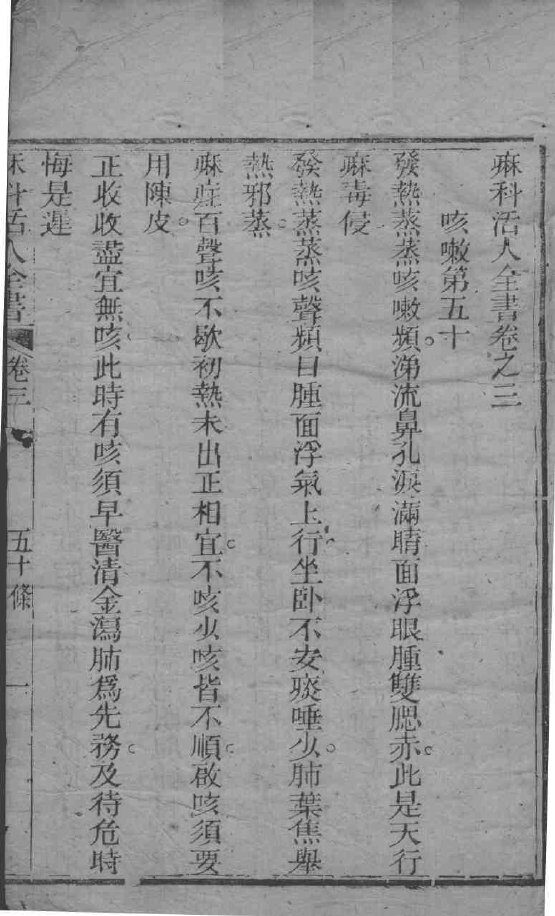 麻科活人全書卷之三
咳嗽第五十
發熱蒸蒸咳嗽頻。涕流鼻孔淚滿睛面浮眼腫雙腮赤。此是天行
麻毒侵
發熱蒸蒸咳聲頻目腫面浮氣上行。坐卧不安痰唾少。肺葉焦舉
熱邪蒸。
麻症百聲咳不歇初熱未出正相宜。不咳少咳皆不順。啟咳須要
用陳皮。
正收收盡宜無咳。此時有咳須早醫清金瀉肺為先務。及待危時
悔是遲
麻科活人全書 卷三 五十條 一